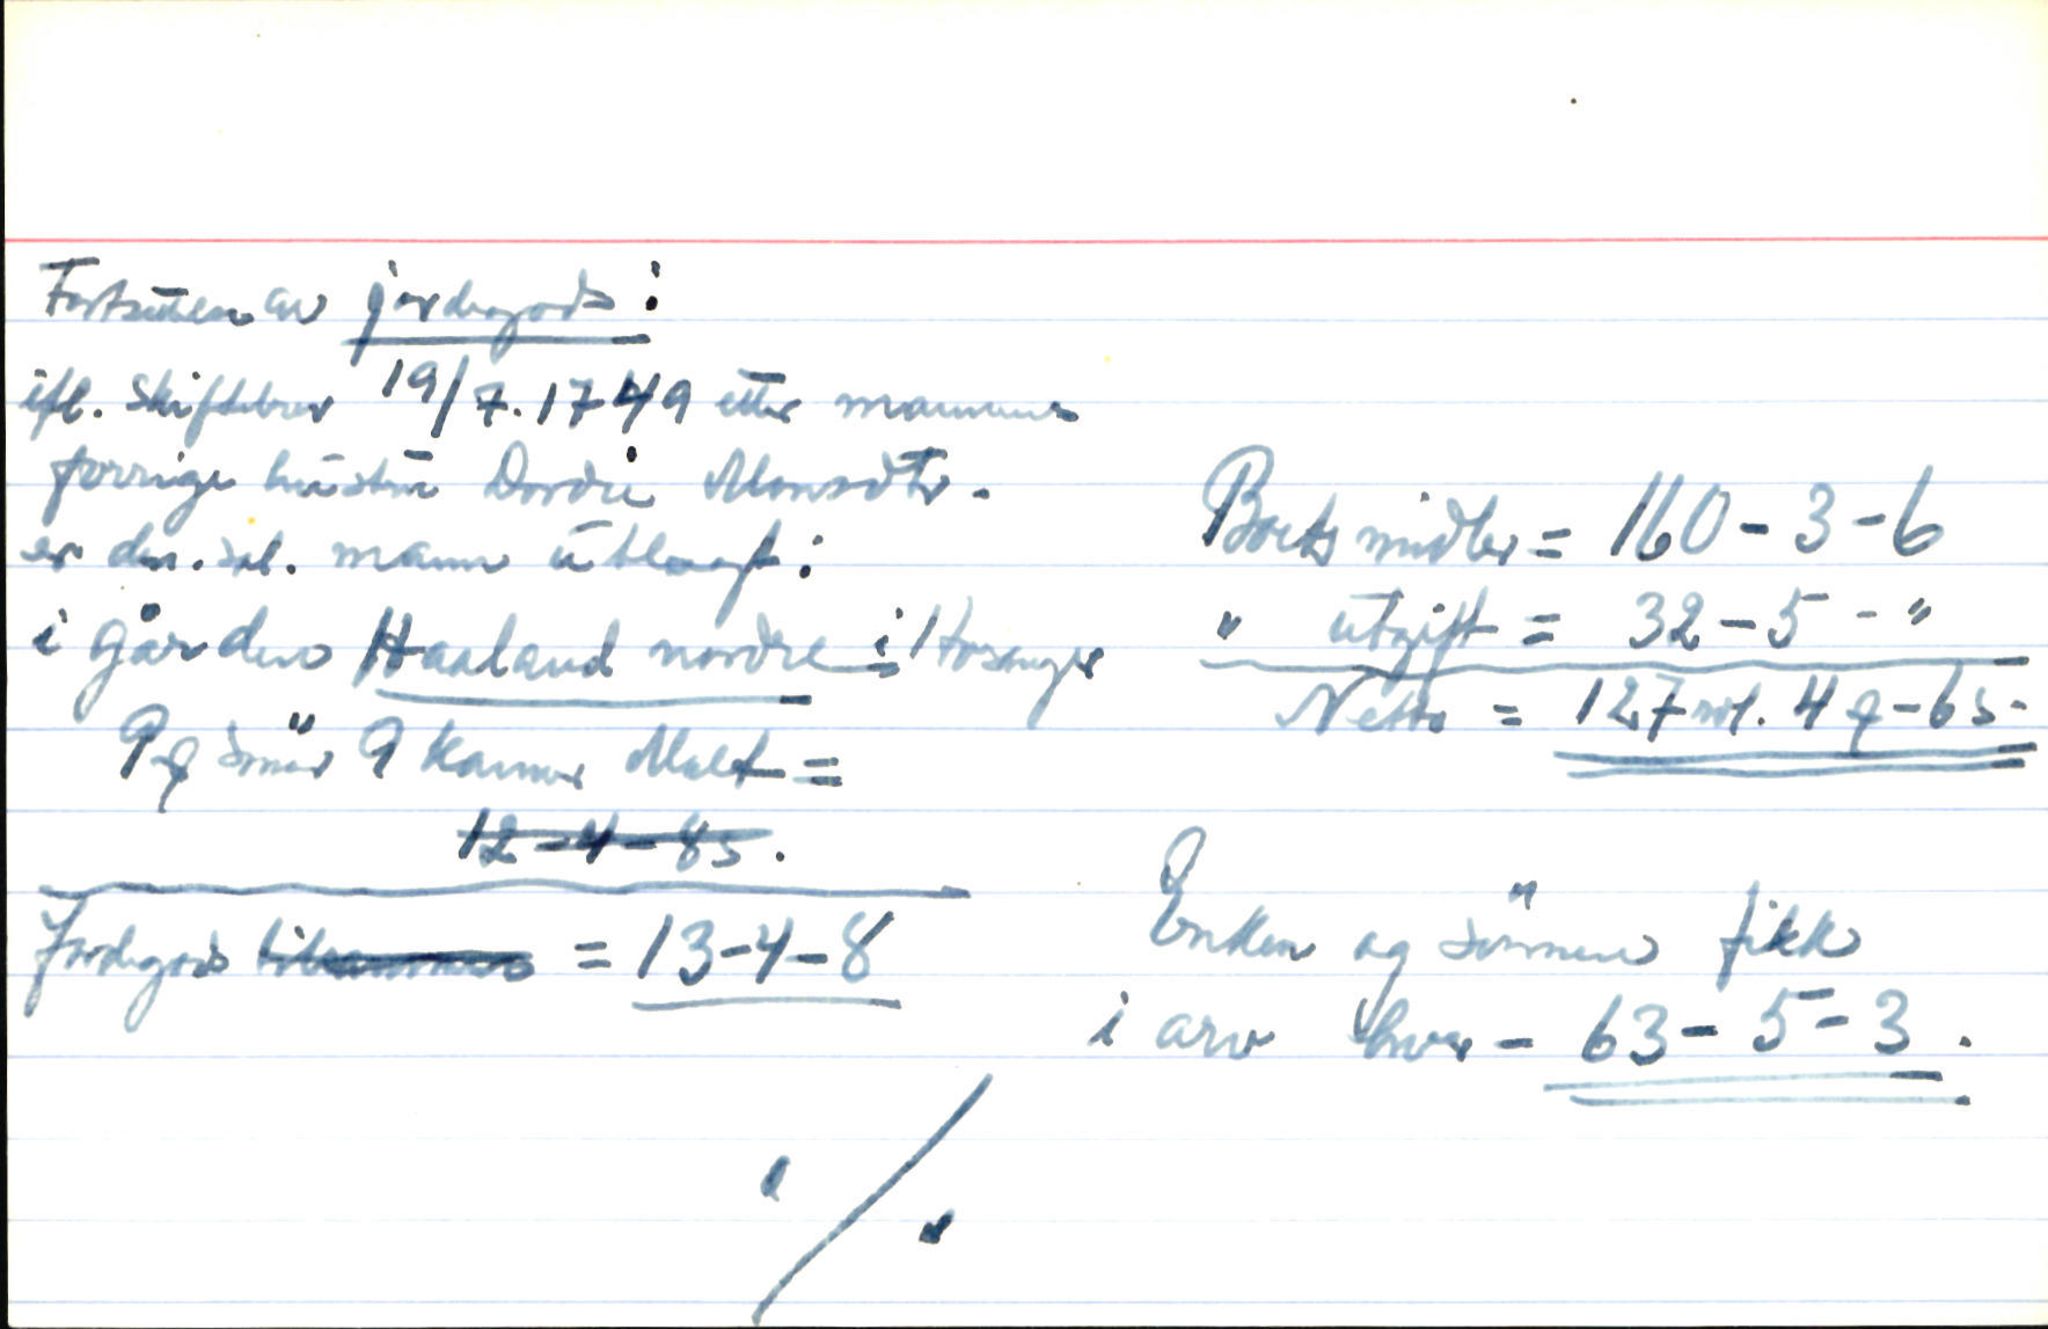 Fortsettelsen av jordegods:
ifl. Skiftebrev 19/7.1749 etter mannens
forrige hustru Dordie Monsdtr.
er den. sal. mann utlagt:
i gården Haaland nordre i Hosanger
9 smör 9 kanner Malt =
12-4-8s.
Jordegods tilsammen = 13-4-8
Boets midler = 160-3-6
" utgift = 32-5-"
Netto = 127 rd. 4 -6s.
Enken og sönnen fikk
i arv hver - 63-5-3.